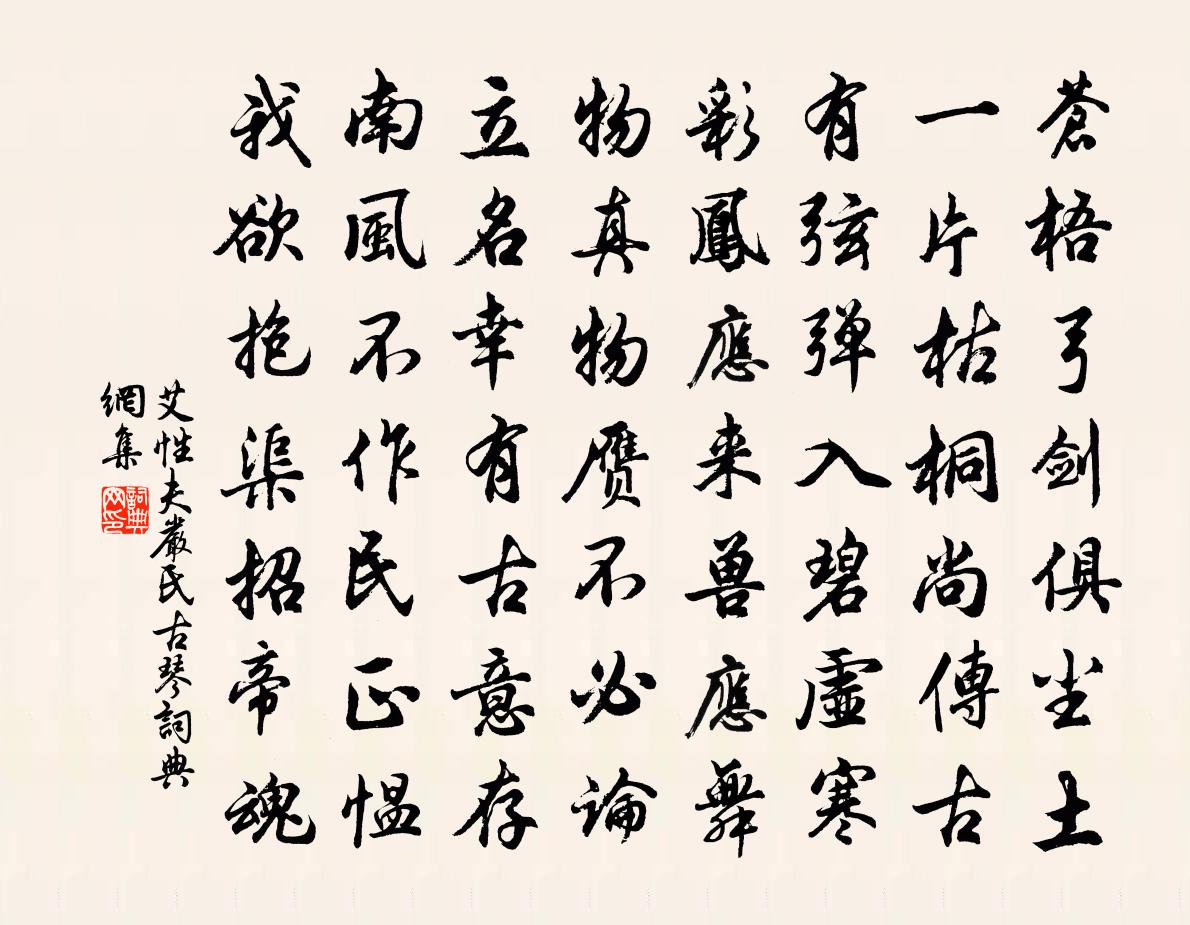 蒼梧弓剑俱坐土
一片枯桐尚傳古
有弦弹入碧虛寒
彩鳳應来兽應舞
物真物贋不必論
立名幸有古意存
南風不作民正愠
我欲抱渠招帝魂
艾性夫嚴氏古琴詞典
網集
詞典
网印